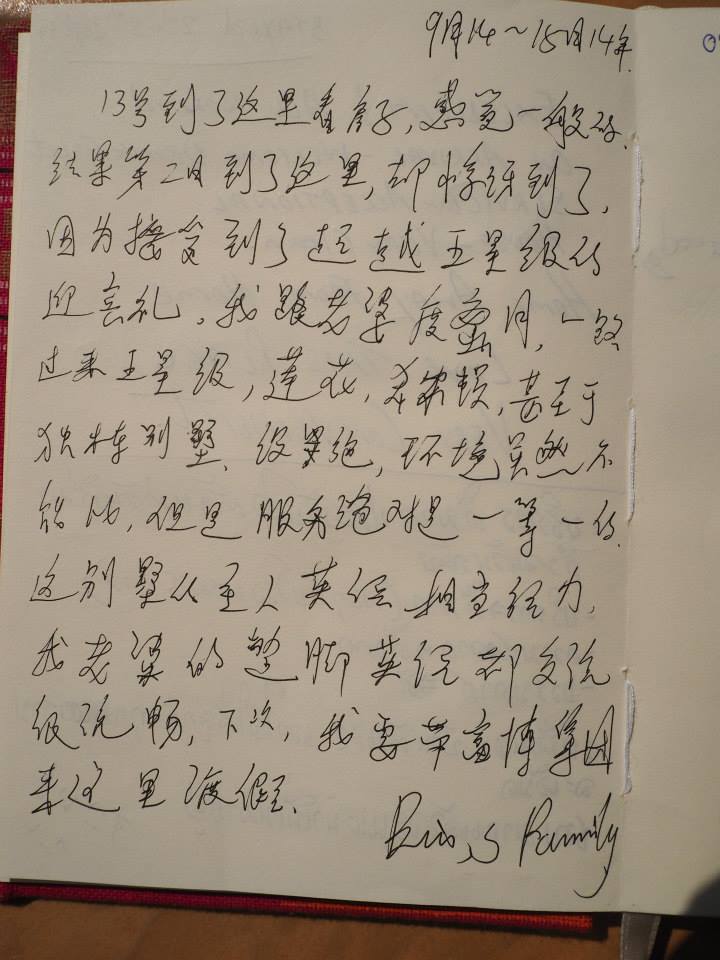 9月14～15日14年.
13号到了这里看房子,感觉一般的.
结果第二日到了这里,却惊讶到了,
因为接受到了超越五星级的
迎宾礼,我跟老婆度蜜月,一路
过来五星级,莲花,甚至于
独栋别墅、环境虽然不
能比,但是服务绝对是一等一的.
这别墅从主人英语相当给力,
我老婆的蹩脚英语都交流
级流畅,下次,我要带富博集团
来这里渡假.
Family